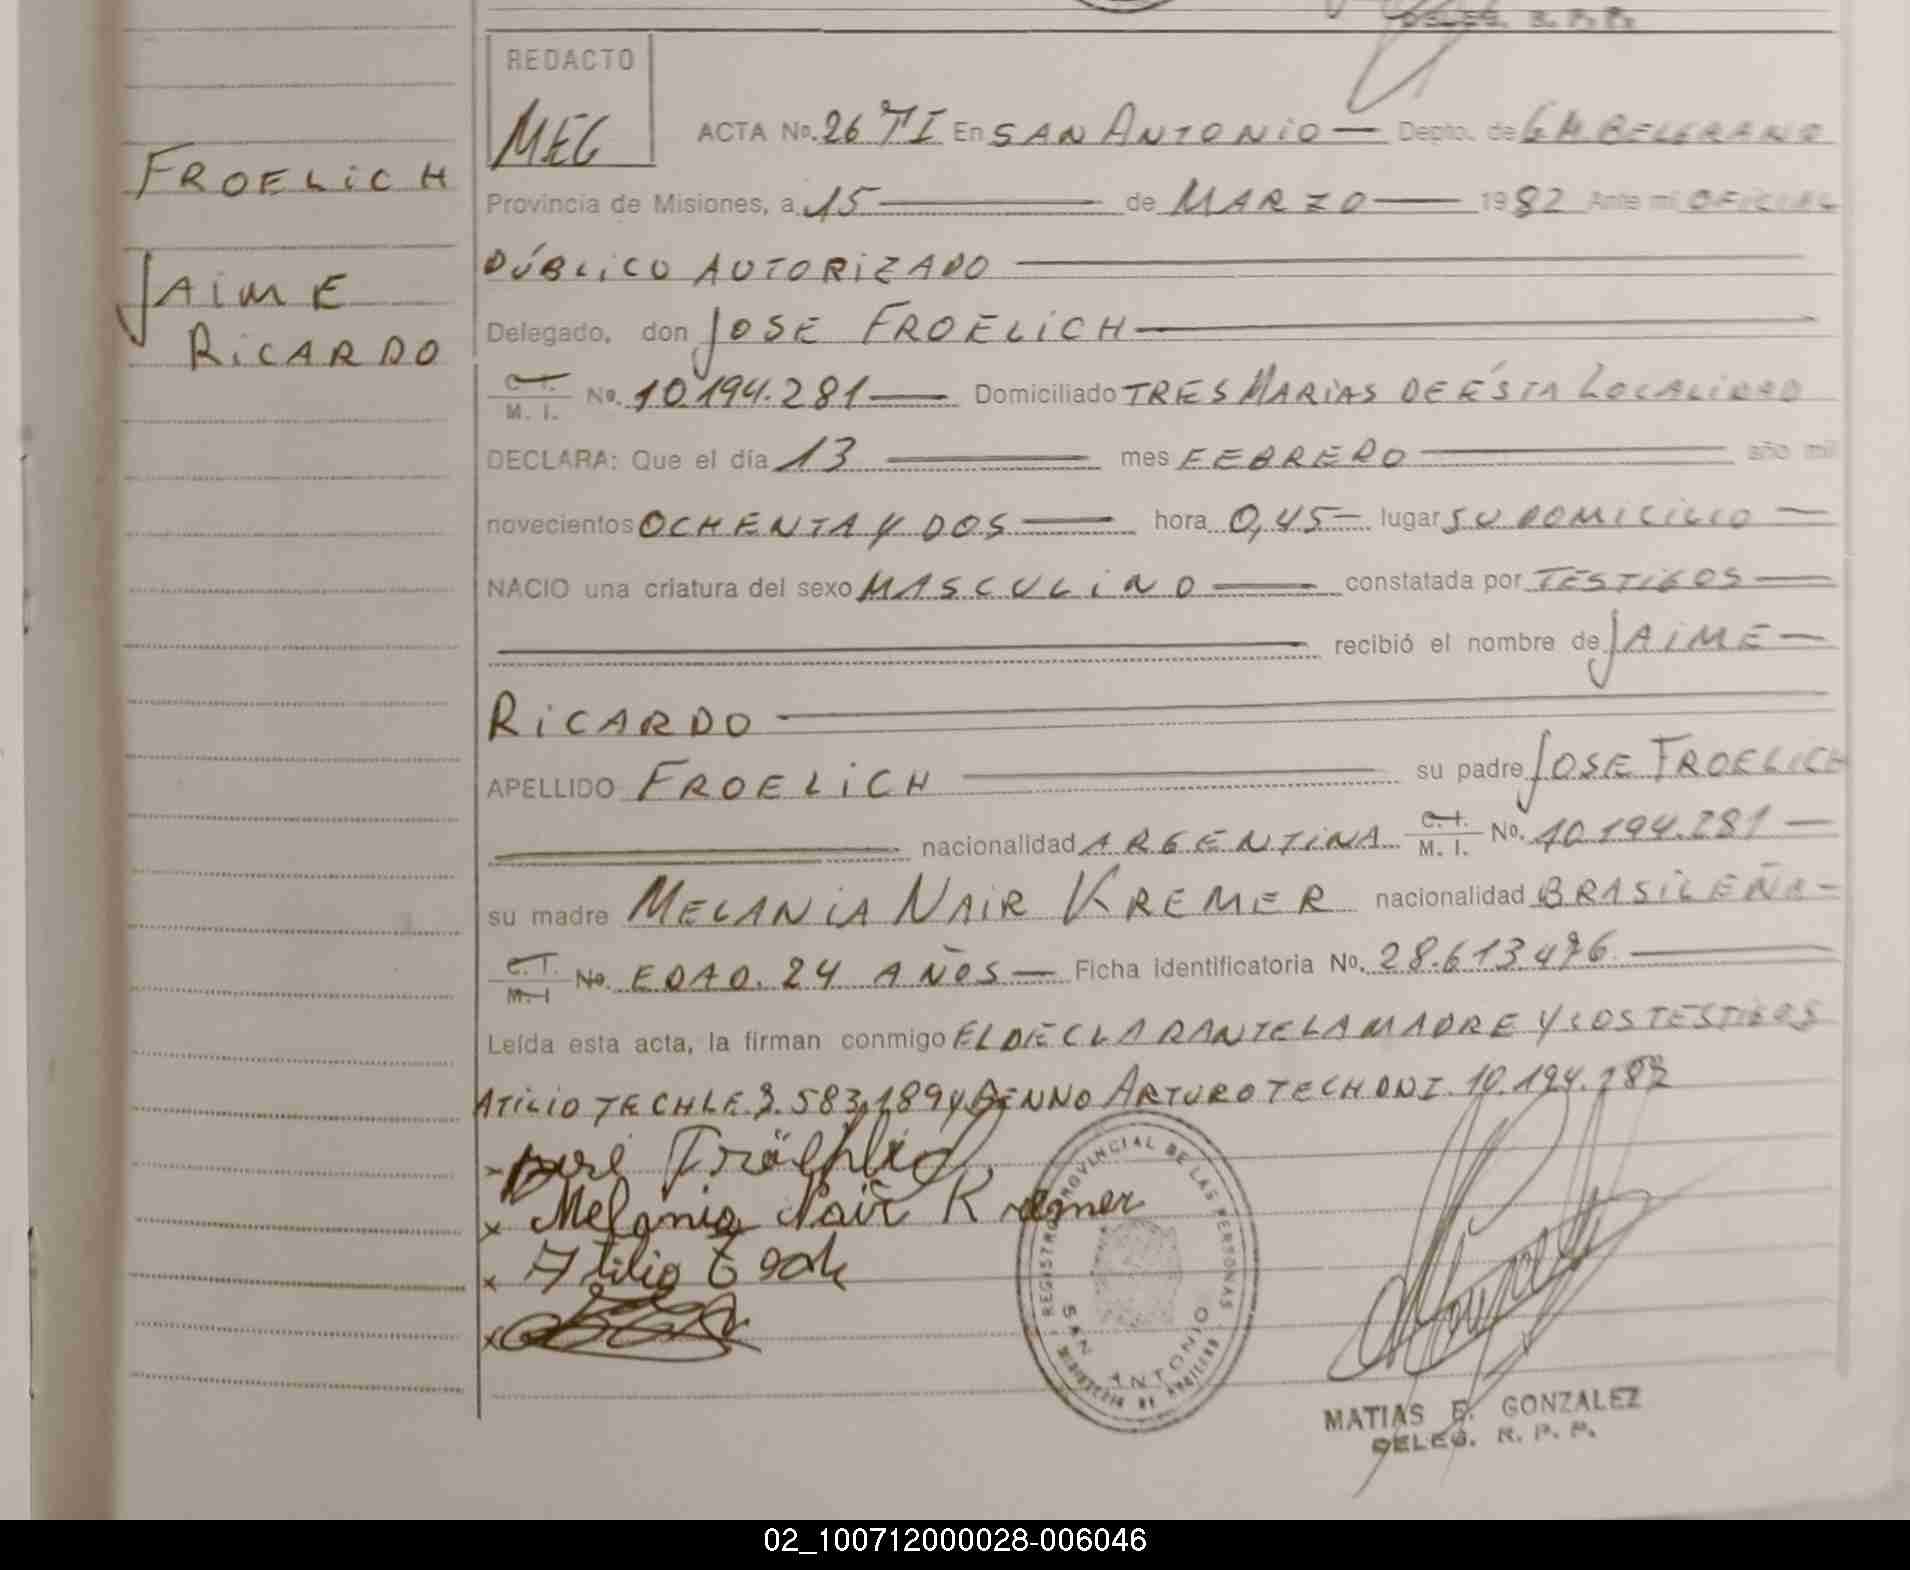 DELEG. R. P. P.
REDACTO
MEG
ACTA No. 26 TI En SAN ANTONIO — Depto. de G.M. BELGRANO
FROELICH
Provincia de Misiones, a 15 — de MARZO — 1982 Ante mi OFICIAL
PÚBLICO AUTORIZADO —
JAIME
RICARDO
Delegado, don JOSE FROELICH —
C. I. / M. I. No. 10.194.281 — Domiciliado TRES MARIAS DE ÉSTA LOCALIDAD
DECLARA: Que el día 13 — mes FEBRERO — año mil
novecientos OCHENTA Y DOS — hora 0,45 — lugar SU DOMICILIO —
NACIO una criatura del sexo MASCULINO — constatada por TESTIGOS —
— recibió el nombre de JAIME —
RICARDO —
APELLIDO FROELICH — su padre JOSE FROELICH
— nacionalidad ARGENTINA C. I. / M. I. No. 10.194.281 —
su madre MELANIA NAIR KREMER nacionalidad BRASILEÑA —
C. I. / M. I No. EDAD. 24 AÑOS — Ficha identificatoria No. 28.613.476 —
Leída esta acta, la firman conmigo EL DECLARANTE LA MADRE Y LOS TESTIGOS
ATILIO TECH LE. 3.583.189 Y BENNO ARTURO TECH DNI. 10.194.282
x José Fröehlich
x Melania Nair Kremer
x Atilio Tech
x
REGISTRO PROVINCIAL DE LAS PERSONAS
SAN ANTONIO
MATIAS E. GONZALEZ
DELEG. R. P. P.
02_100712000028-006046